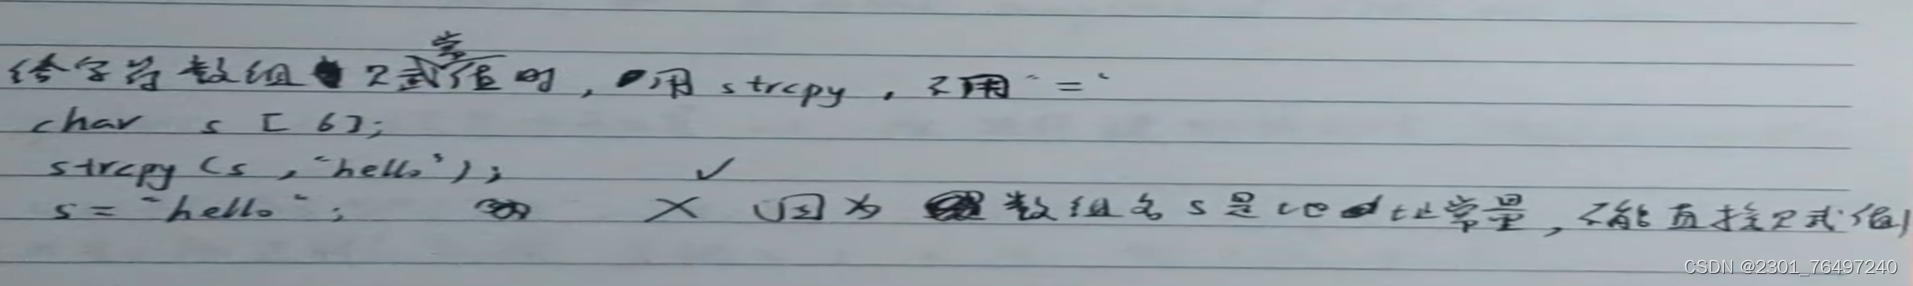 给字符数组赋值时，用strcpy，不用"="
char s[6];
strcpy(s,"hello"); ✓
s="hello"; × 因为数组名s是地址常量，不能直接赋值
CSDN @2301_76497240